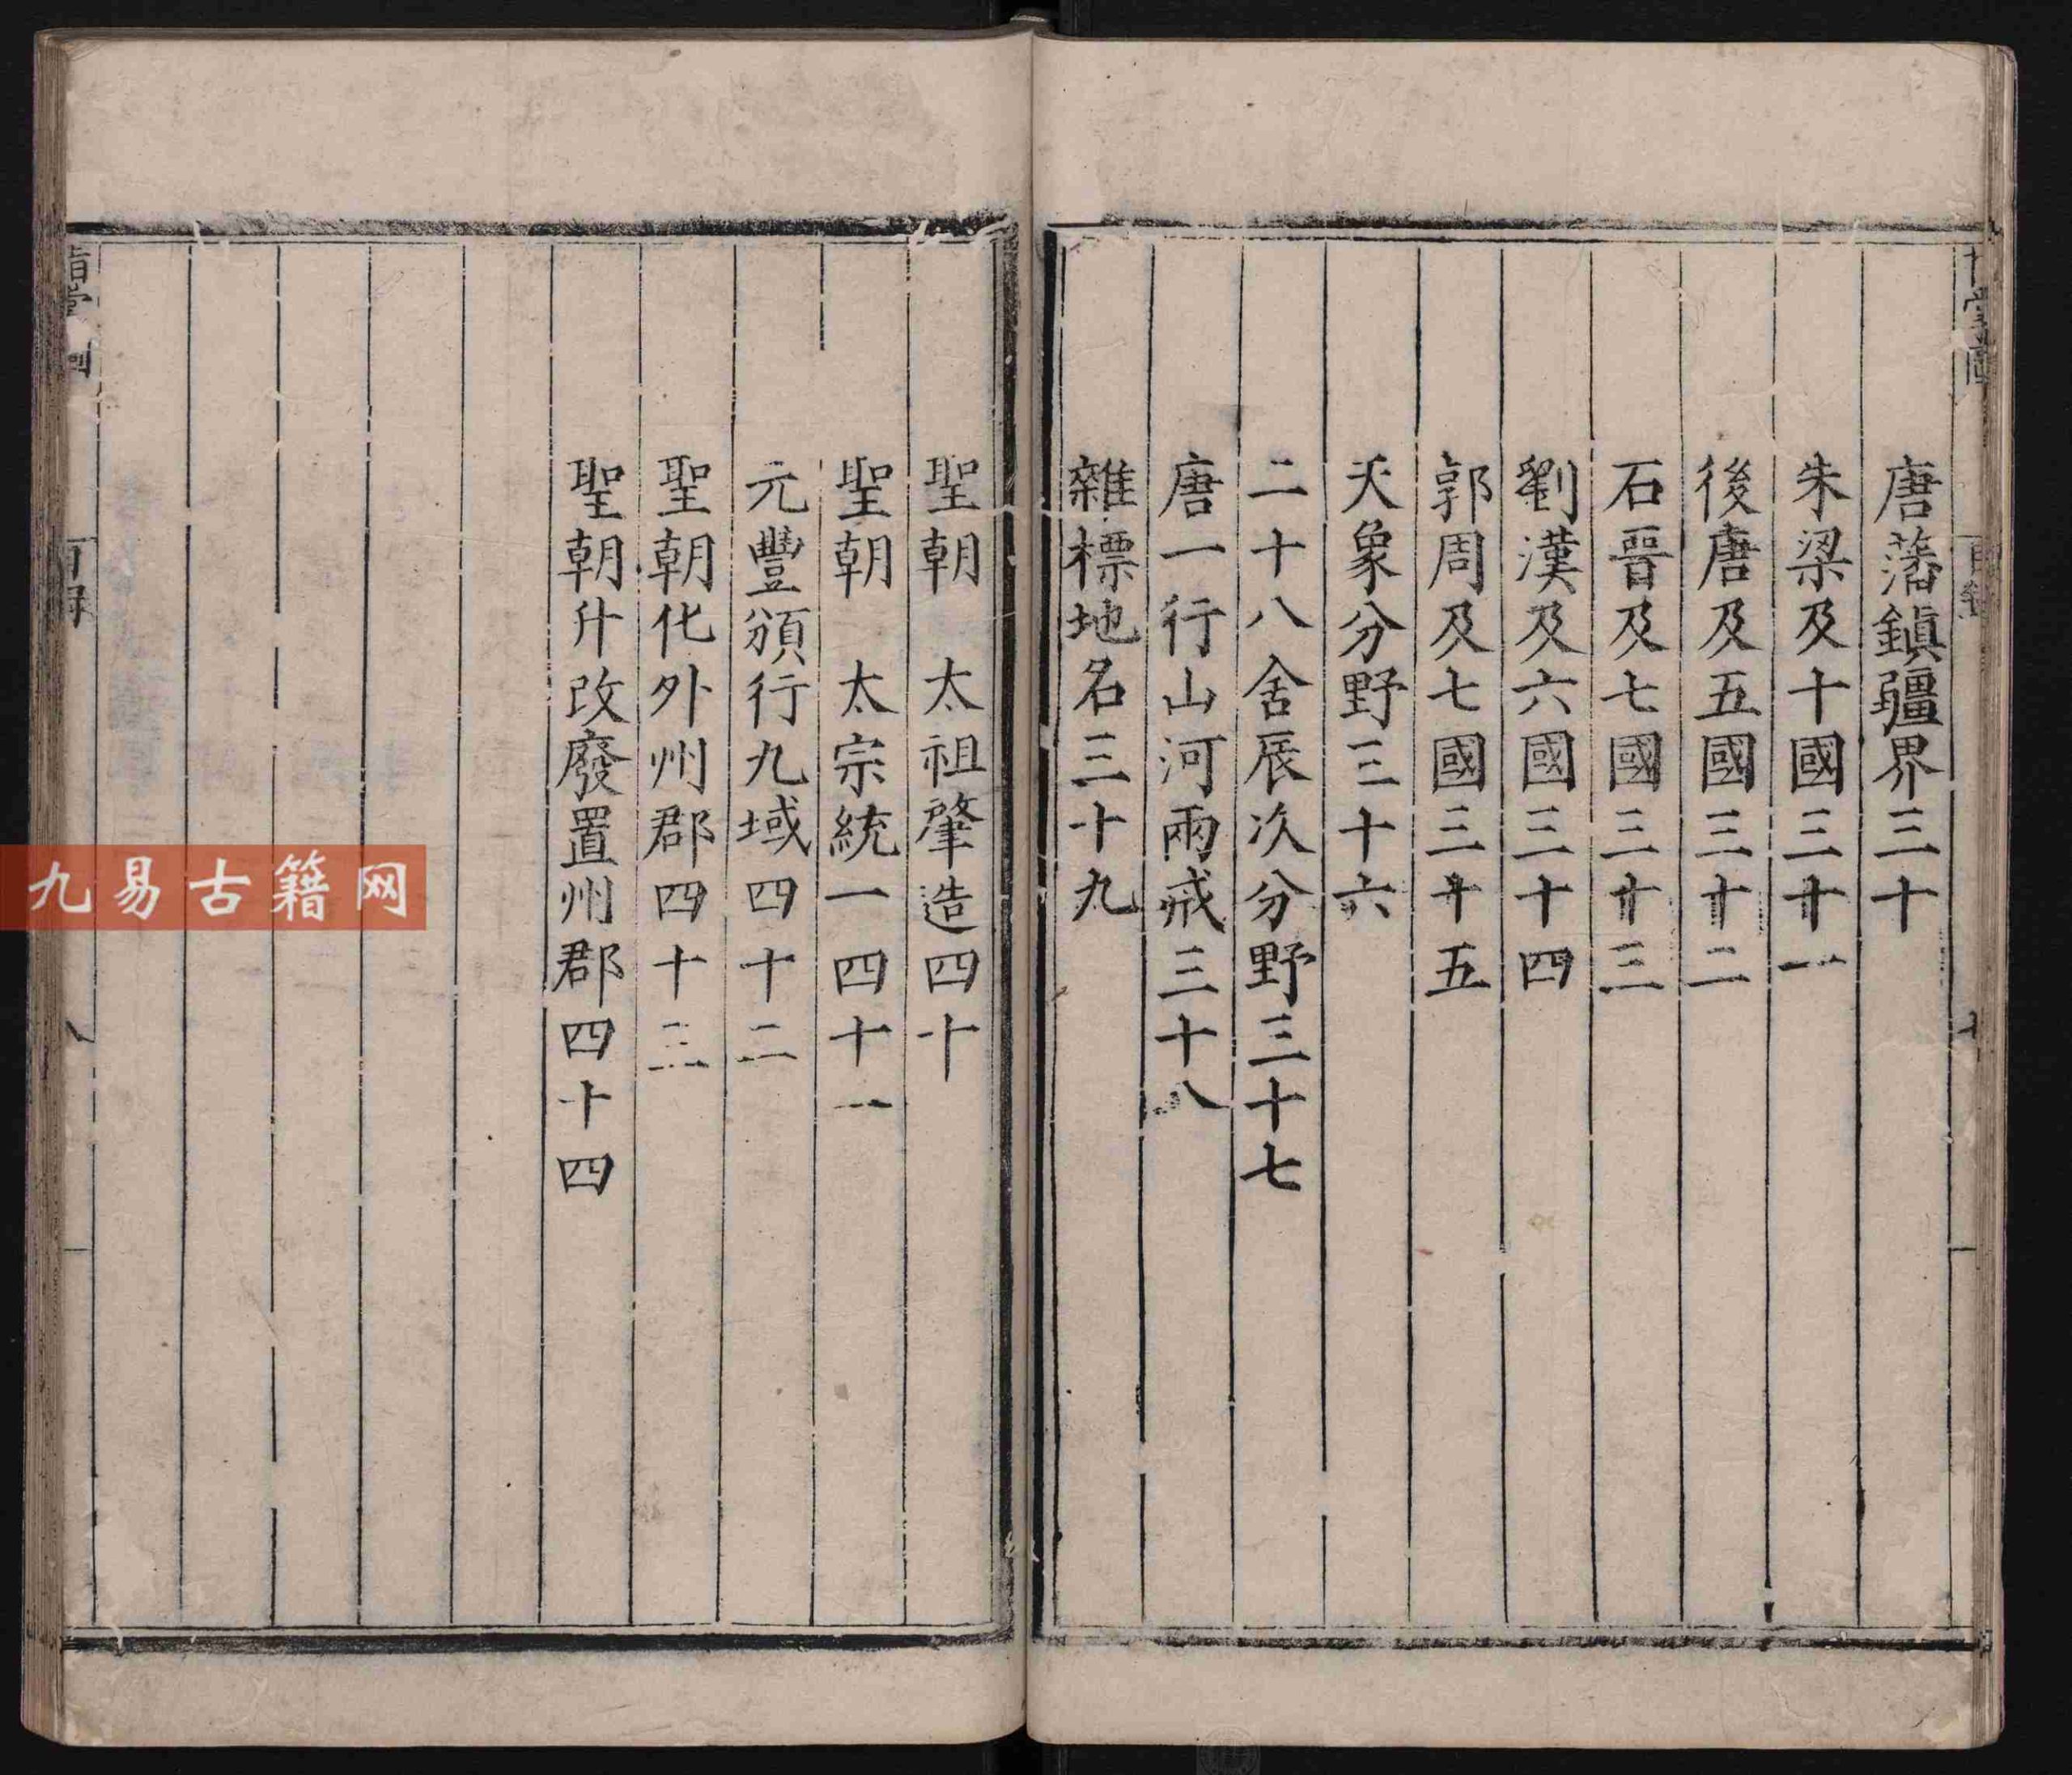 唐藩鎮疆界三十
朱梁及十國三十一
後唐及五國三十二
石晉及七國三十三
劉漢及六國三十四
郭周及七國三十五
天象分野三十六
二十八舍辰次分野三十七
唐一行山河兩戒三十八
雜標地名三十九
聖朝　太祖肇造四十
聖朝　太宗統一四十一
元豐頒行九域四十二
聖朝化外州郡四十三
聖朝升改廢置州郡四十四
九易古籍网